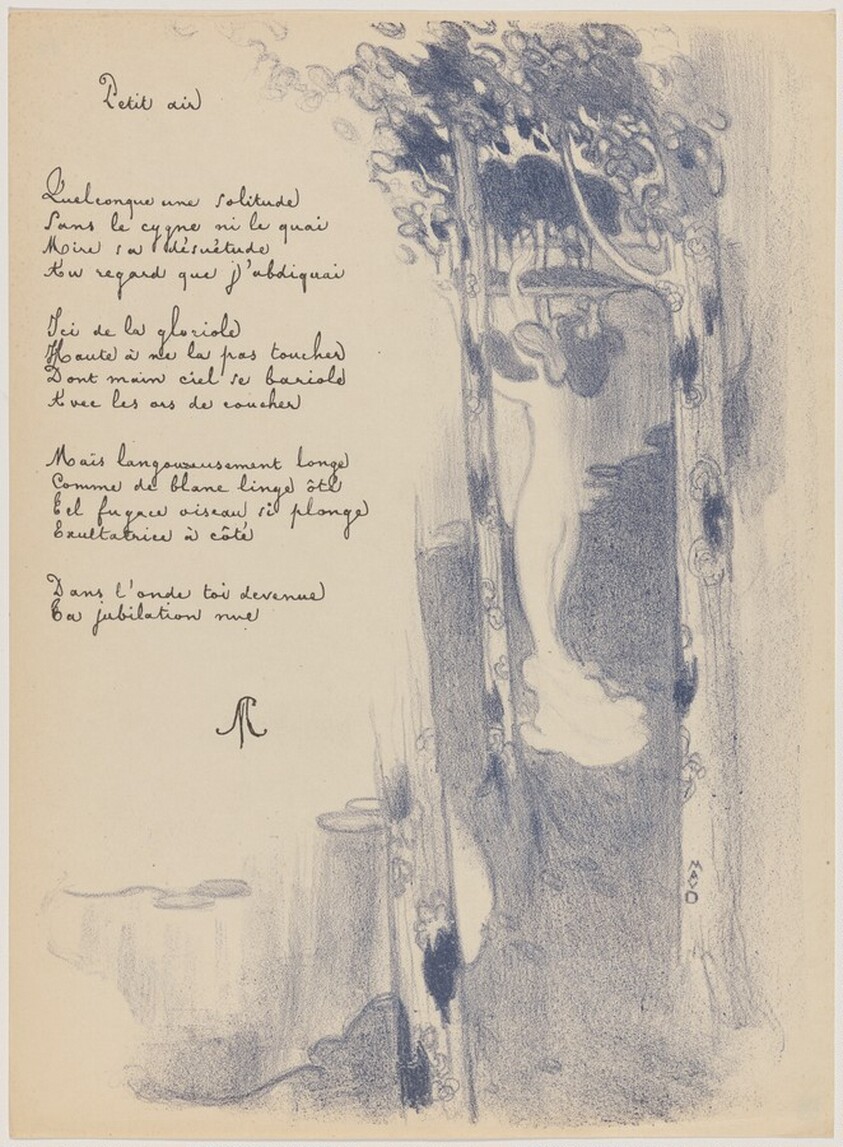 Petit air
Quelconque une solitude
Sans le cygne ni le quai
Mire sa désuétude
Au regard que j'abdiquai
Ici de la gloriole
Haute à ne la pas toucher
Dont main ciel se bariole
Avec les ors de coucher
Mais langoureusement longe
Comme de blanc linge ôté
Tel fugace oiseau si plonge
Exultatrice à côté
Dans l'onde toi devenue
Ta jubilation nue
MAVD